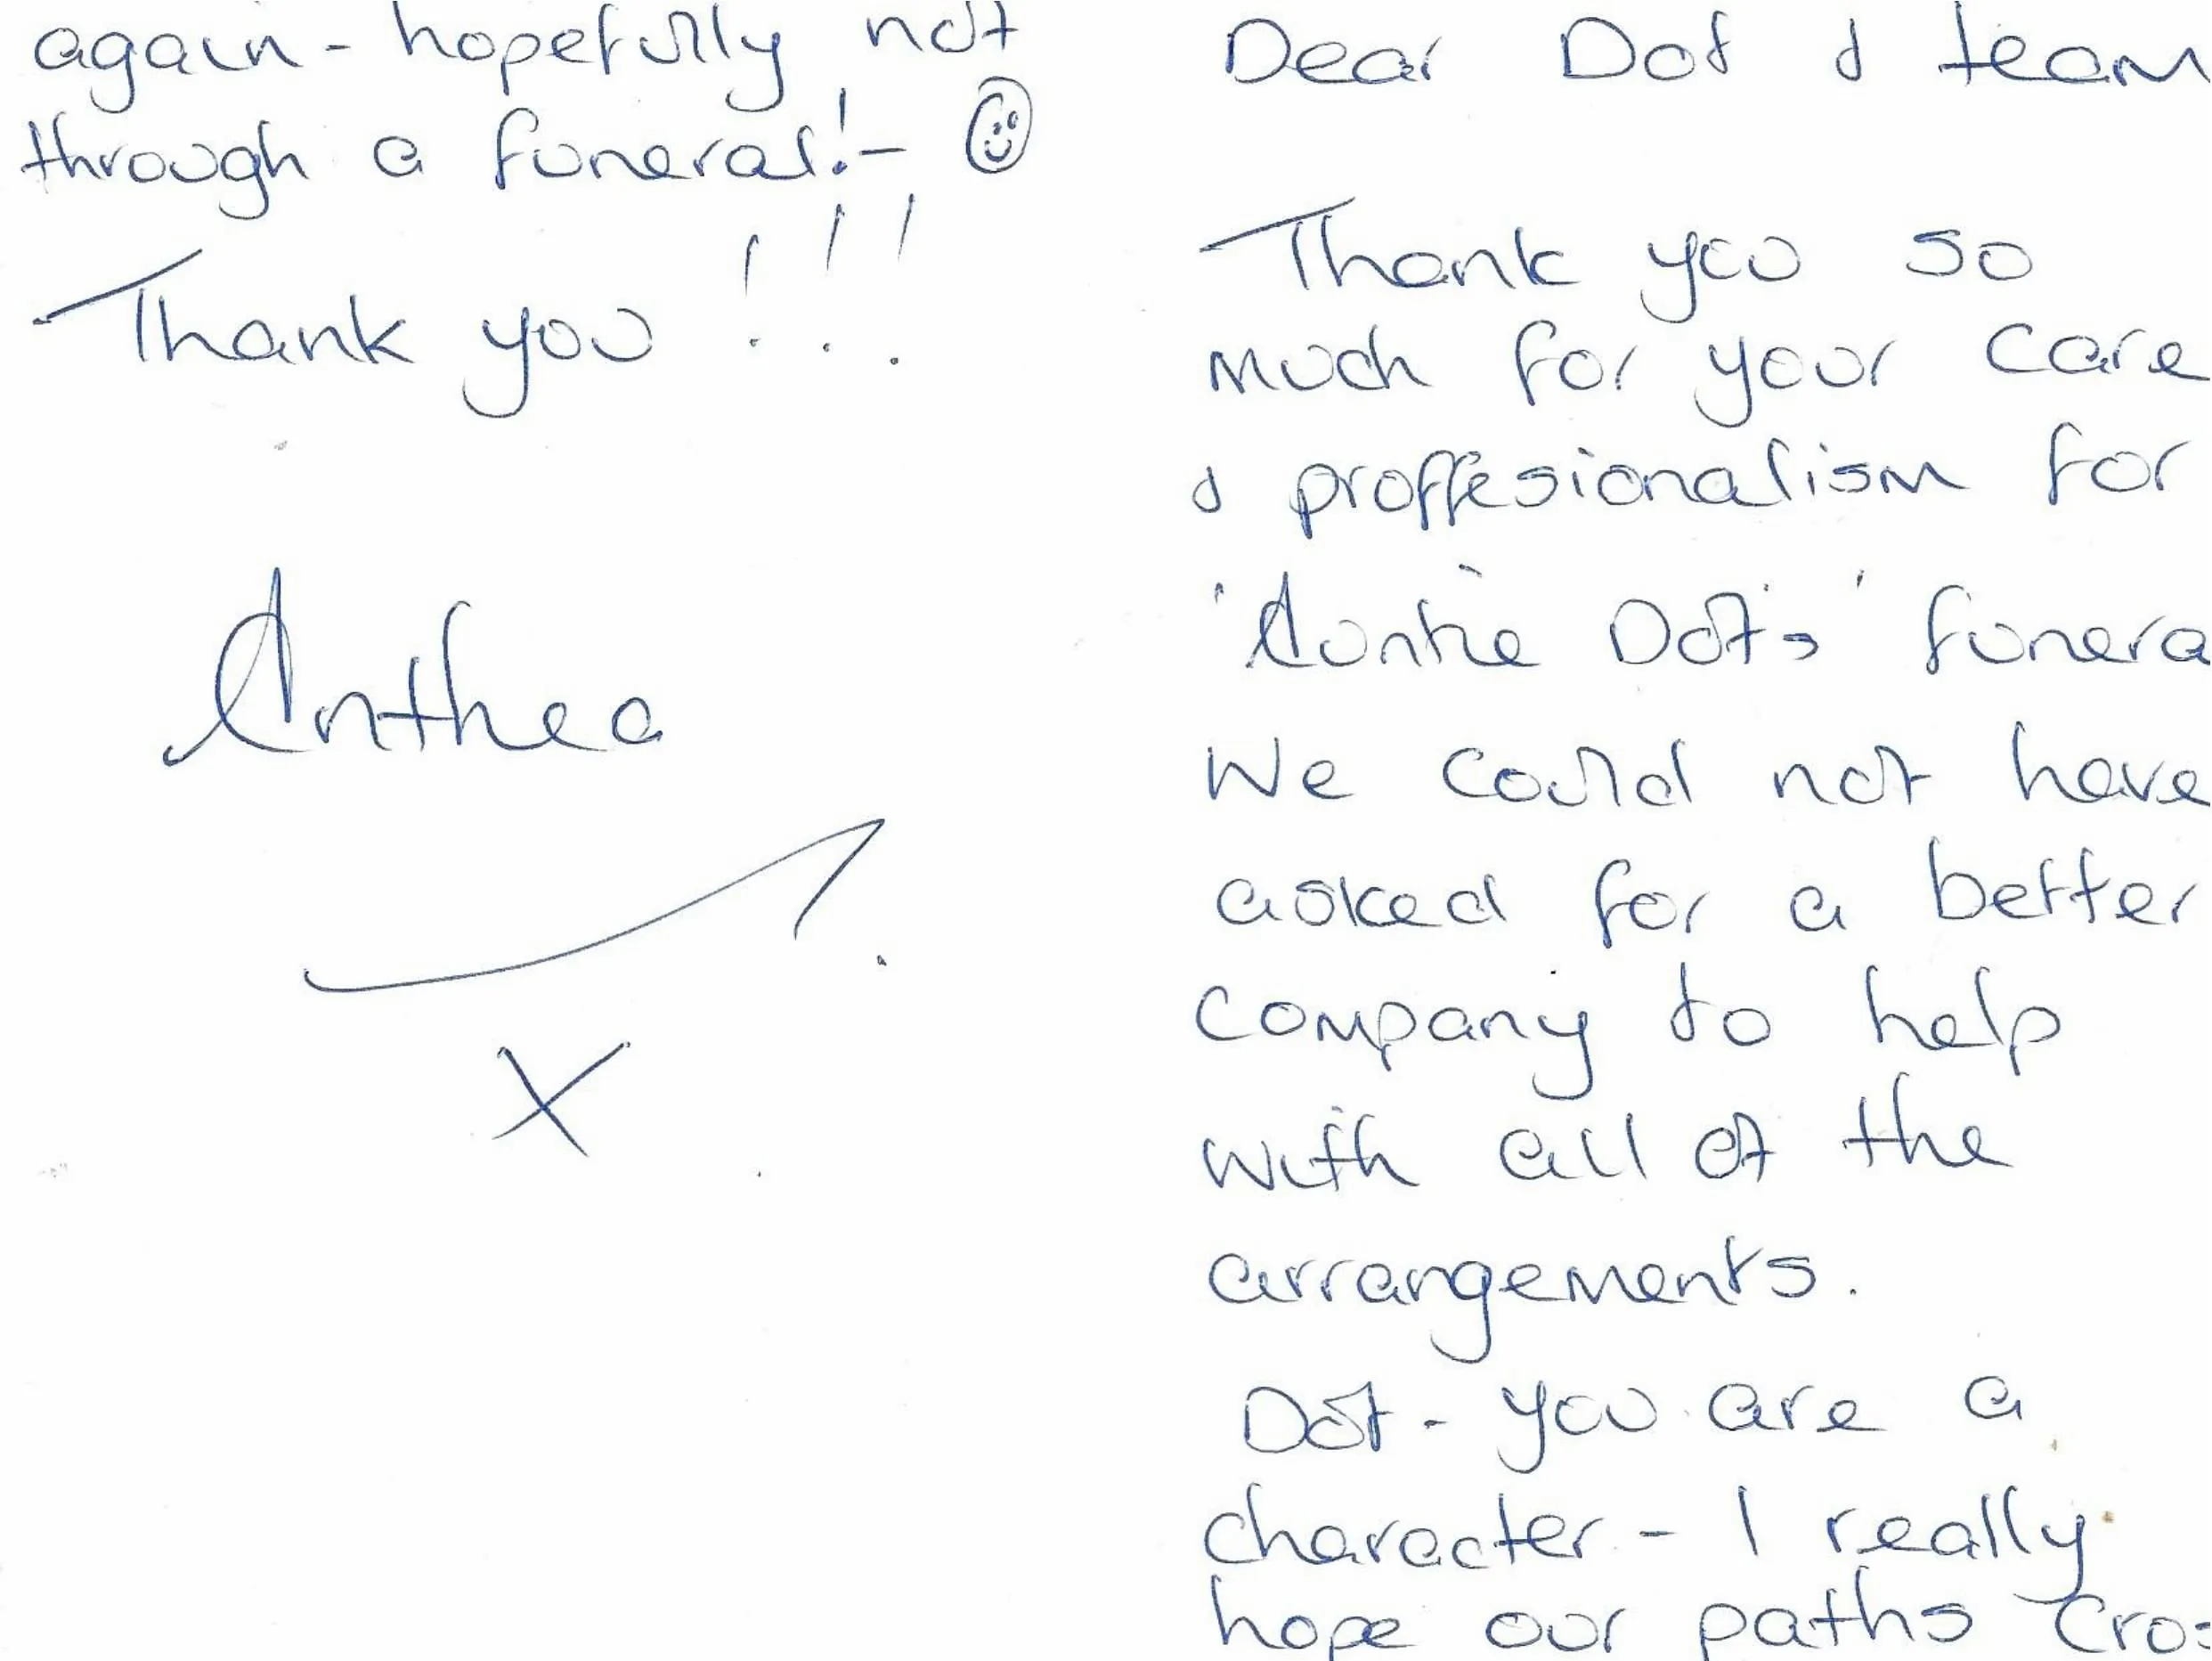 Dear Dot & team
Thank you so
much for your care
& proffesionalism for
'Auntie Dot's' funera
We could not have
asked for a better
company to help
with all of the
arrangements.
Dot - you are a
character - I really
hope our paths cros
again - hopefully not
through a funeral! - ☺
Thank you !!!
Anthea
X